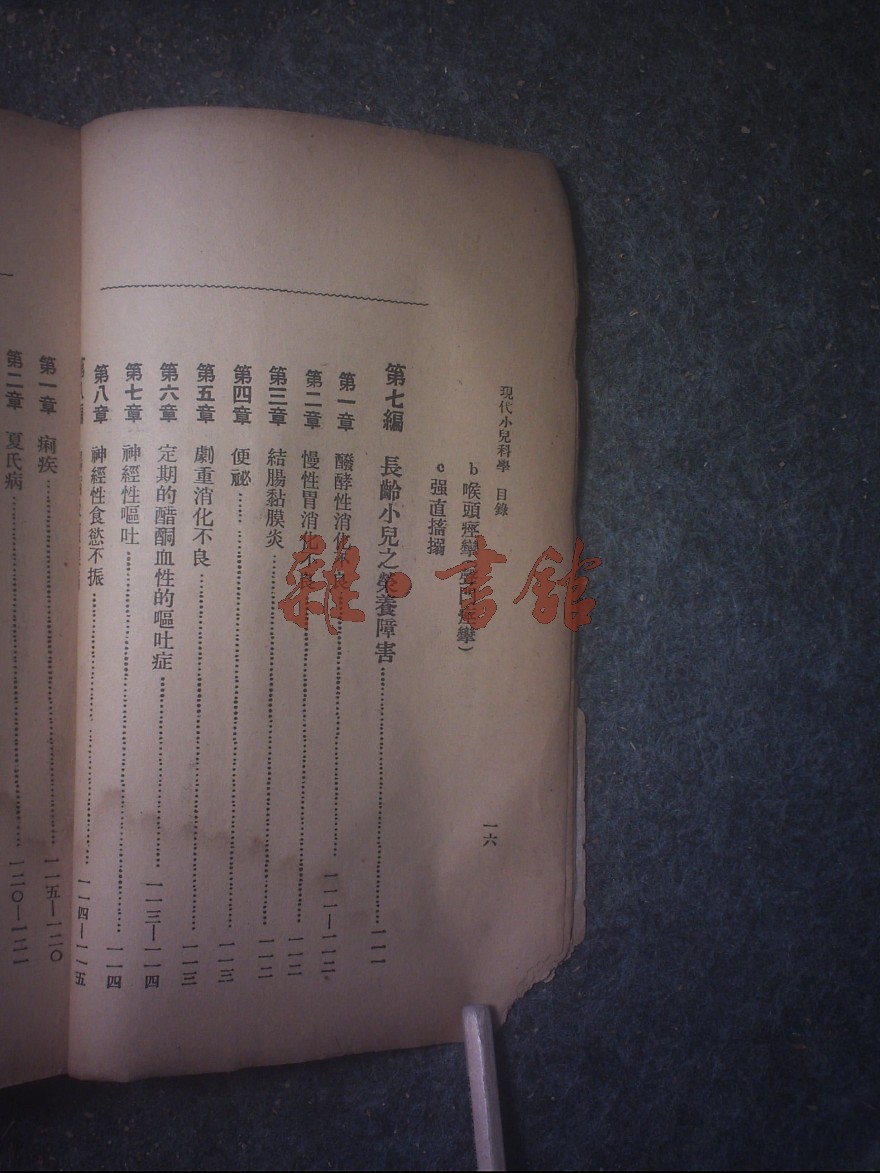 現代小兒科學 目錄
一六
b 喉頭痙攣(聲門痙攣)
c 强直搐搦
第七編 長齡小兒之榮養障害 一一一
第一章 醱酵性消化不良 一一一—一一二
第二章 慢性胃消化不良 一一二
第三章 結腸黏膜炎 一一二
第四章 便祕 一一三
第五章 劇重消化不良 一一三
第六章 定期的醋酮血性的嘔吐症 一一三—一一四
第七章 神經性嘔吐 一一四
第八章 神經性食慾不振 一一四—一一五
第一章 痢疾 一一五—一二〇
第二章 夏氏病 一二〇—一二一
雜·書館